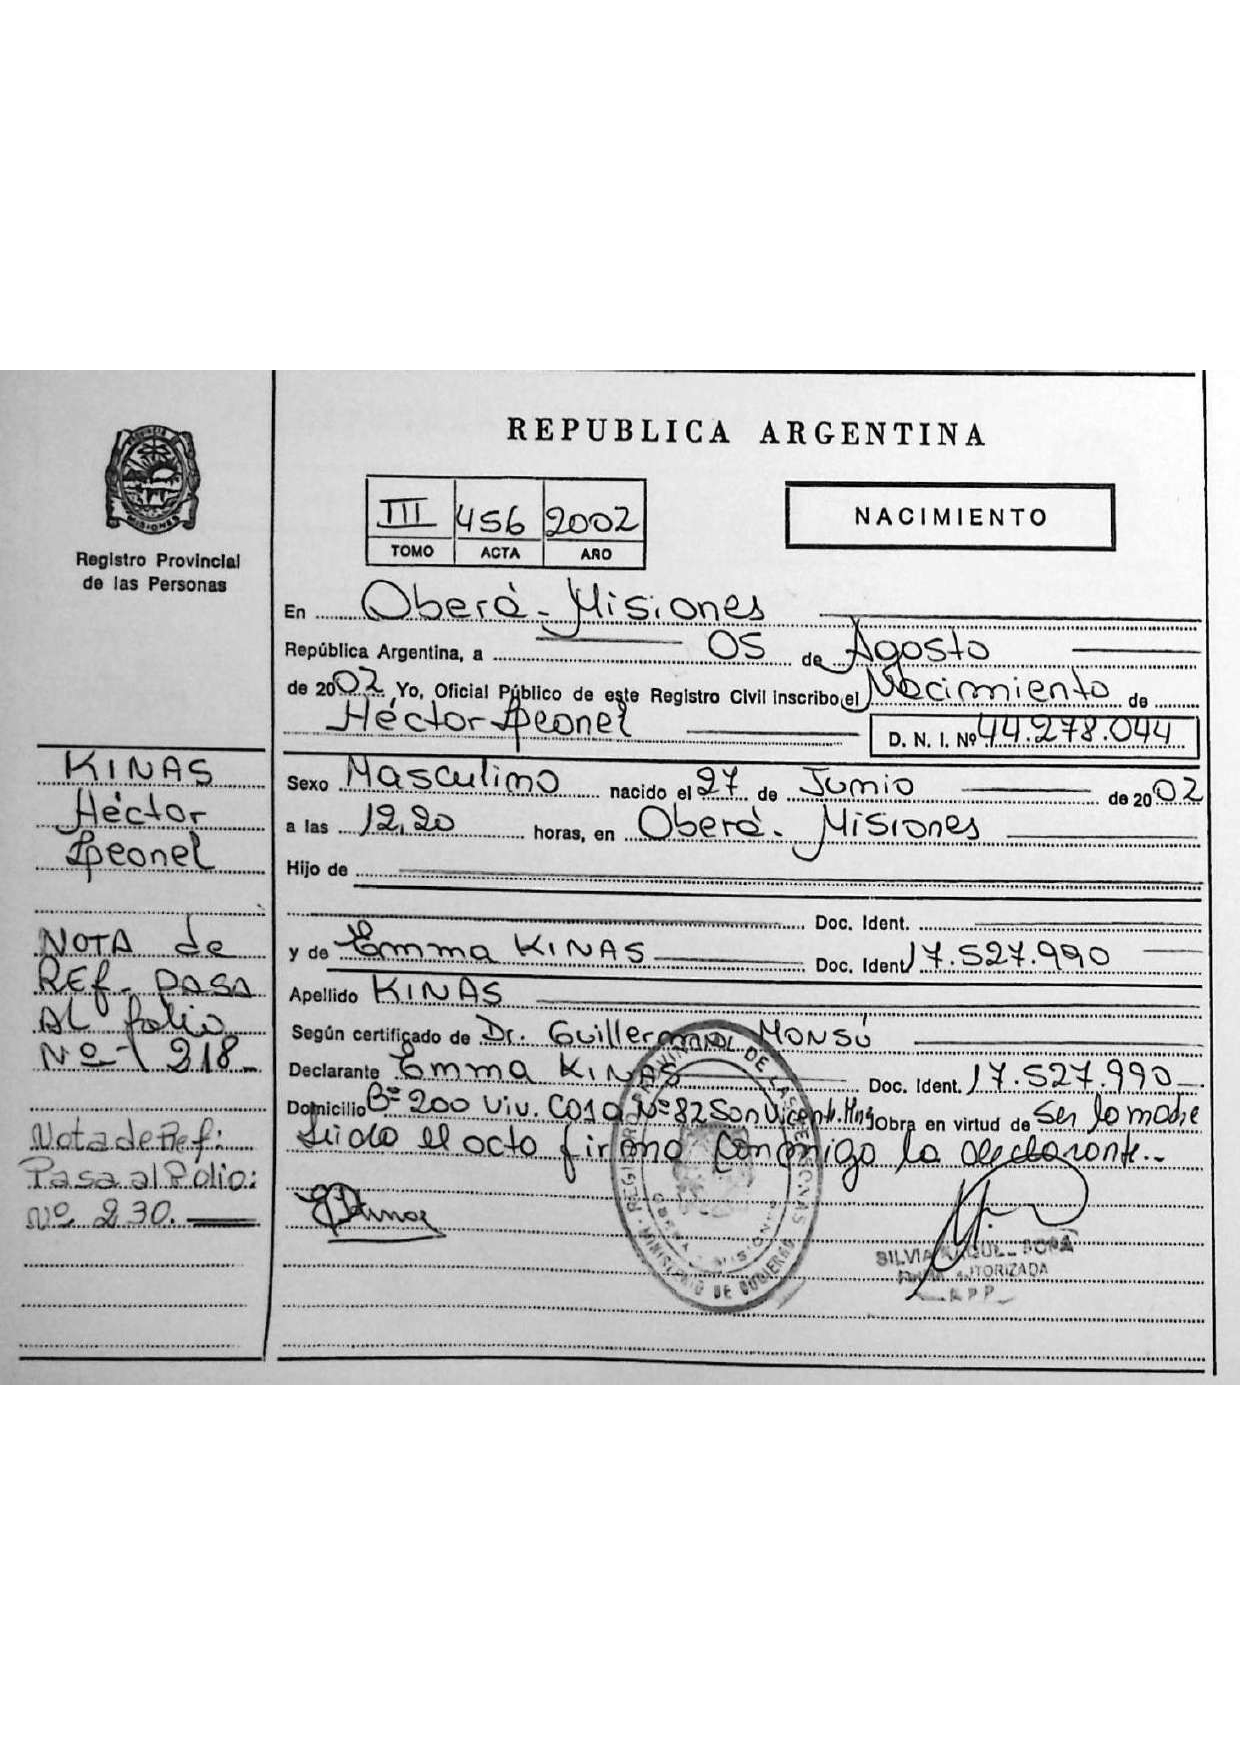 REPUBLICA ARGENTINA
PROVINCIA DE MISIONES
Registro Provincial
de las Personas
III 456 2002
TOMO ACTA AÑO
NACIMIENTO
En Oberá - Misiones
República Argentina, a 05 de Agosto
de 2002 Yo, Oficial Público de este Registro Civil inscribo el Nacimiento de
Héctor Leonel D. N. I. Nº 44.278.044
Sexo Masculino nacido el 27 de Junio de 2002
a las 12,20 horas, en Oberá - Misiones
Hijo de
Doc. Ident.
y de Emma KINAS Doc. Ident. 17.527.990
Apellido KINAS
Según certificado de Dr. Guillermo MONSÚ
Declarante Emma KINAS Doc. Ident. 17.527.990
Domicilio Bº 200 Viv. Casa Nº 82 San Vicente Mnes obra en virtud de ser la madre
Leida el acta firma conmigo la declarante.-
KINAS
Héctor
Leonel
NOTA de
REF - PASA
AL folio
Nº - 218 -
Nota de Ref:
Pasa al Folio:
Nº 230.
REGISTRO PROVINCIAL DE LAS PERSONAS
MINISTERIO DE GOBIERNO
OBERA MISIONES
SILVIA
AUTORIZADA
R P P